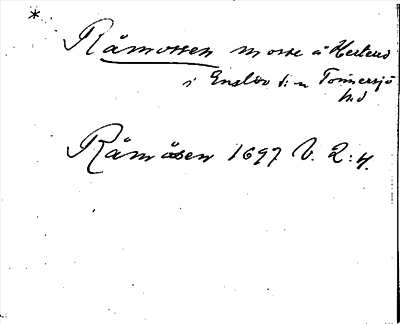 * Råmossen mosse å Hertered
i Enslöv s:n Tönnersjö
hd
Råmåsen 1697 V. 2:4.